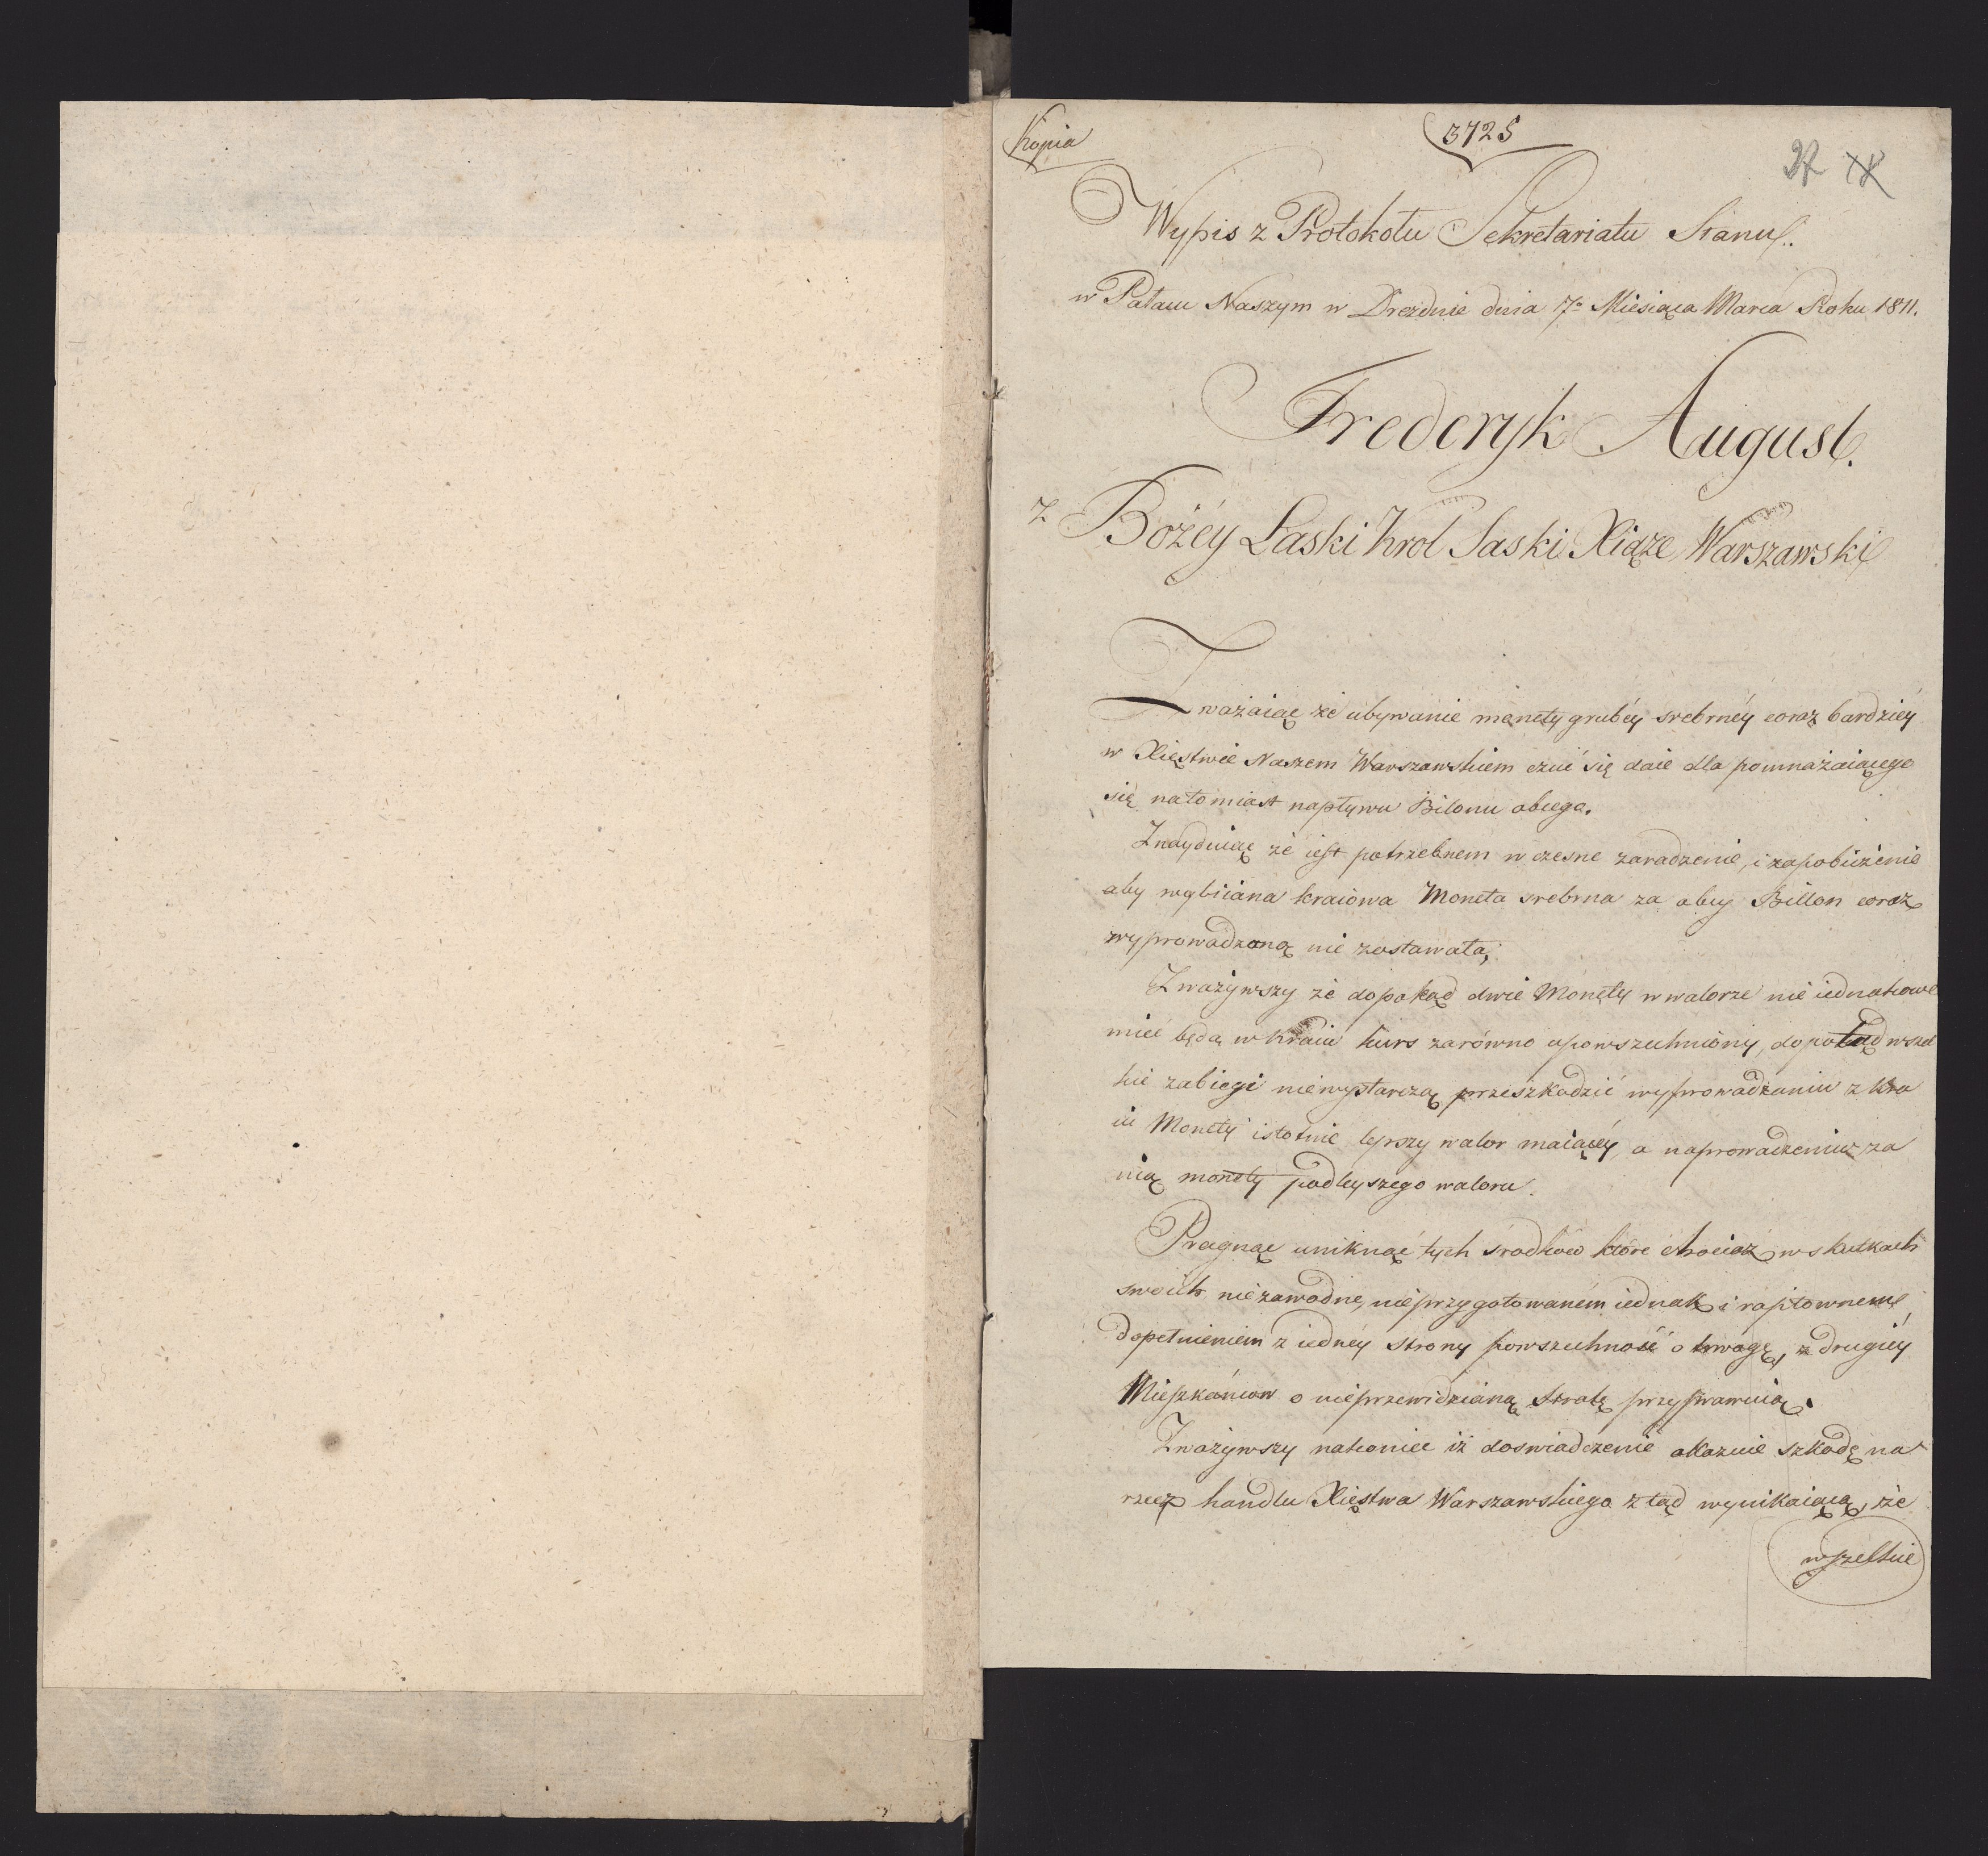 Kopia
3725
27
Wypis z Protokołu Sekretariatu Stanu.
w Pałacu Naszym w Dreźdnie dnia 7º Miesiąca Marca Roku 1811.
Frederyk August.
Z Bożéy Łaski Krol Saski Xiąże Warszawski
Zważaiąc że ubywanie monety grubéy srebrnéy coraz bardziéy
w Xięstwie Naszem Warszawskiem czuć się daie dla pomnażaiącego
się natomiast napływu Bilonu obcego.
Znayduiąc że iest potrzebnem wczesne zaradzenie, i zapobieżenie
aby wybiiana kraiowa Moneta srebrna za obcy Billon coraz
wyprowadzoną nie zostawała;
Zważywszy że dopokąd dwie Monety w walorze nie iednakowe
mieć będą w Kraiu kurs zarówno upowszechniony, dopotąd wszel
kie zabiegi nie wystarczą przeszkodzić wyprowadzaniu z Kra
iu Monety istotnie lepszy walor maiącéy, a naprowadzeniu za
nią monety podleyszego waloru.
Pragnąc uniknąć tych środków które chociaż w skutkach
swoich niezawodne, nieprzygotowaném iednak i raptownem
dopełnieniem z iednéy strony powszechność o trwogę, z drugiéy
Mieszkańców o nieprzewidzianą stratę przyprawuią.
Zważywszy nakoniec iż doswiadczenie okazuie szkodę na
rzecz handlu Xięstwa Warszawskiego z tąd wynikaiącą, że
wszelkie